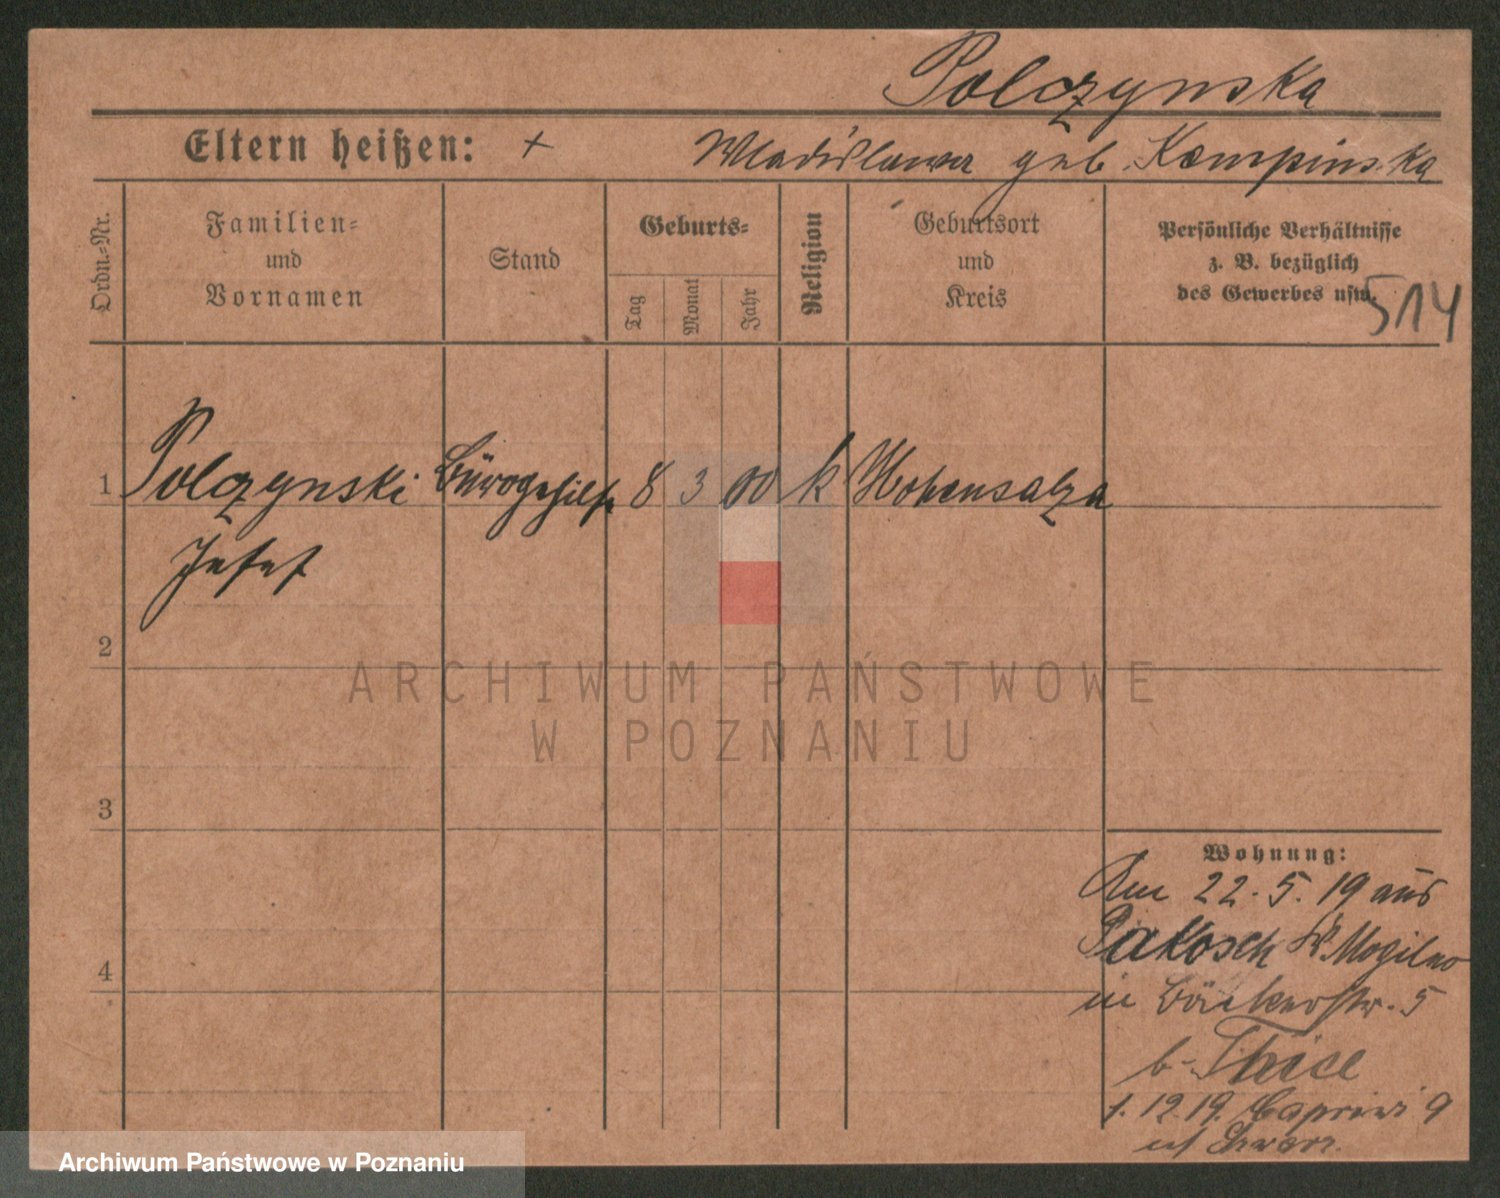 Polczynska
Eltern heißen: + Wladislawa geb. Kempinska
Ordn.-Nr.
Familien-
und
Vornamen
Stand
Geburts-
Tag
Monat
Jahr
Religion
Geburtsort
und
Kreis
Persönliche Verhältnisse
z. B. bezüglich
des Gewerbes usw.
514
1 Polczynski Bürogehilfe 8 3 00 k Hohensalza
Josef
2
ARCHIWUM PAŃSTWOWE
W POZNANIU
3
Wohnung:
Am 22.5.19 aus
Pakosch Kr. Mogilno
4
in Bäckerstr. 5
b.
1.12.19. Caprivi 9
Archiwum Państwowe w Poznaniu